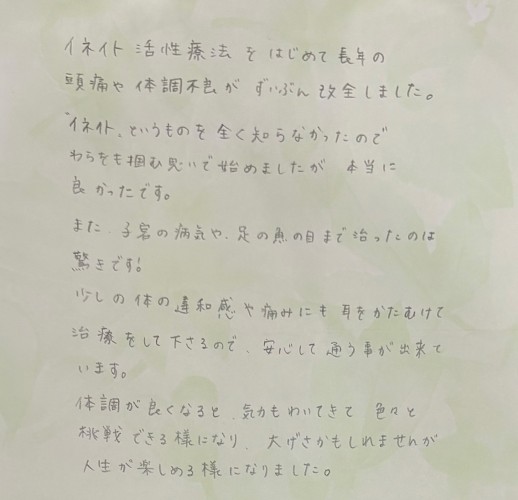 イネイト活性療法をはじめて長年の
頭痛や体調不良がずいぶん改全しました。
"イネイト"というものを全く知らなかったので
わらをも掴む思いで始めましたが本当に
良かったです。
また、子宮の病気や、足の魚の目まで治ったのは
驚きです!
少しの体の違和感や痛みにも耳をかたむけて
治療をして下さるので、安心して通う事が出来て
います。
体調が良くなると、気力もわいてきて色々と
挑戦できる様になり、大げさかもしれませんが
人生が楽しめる様になりました。